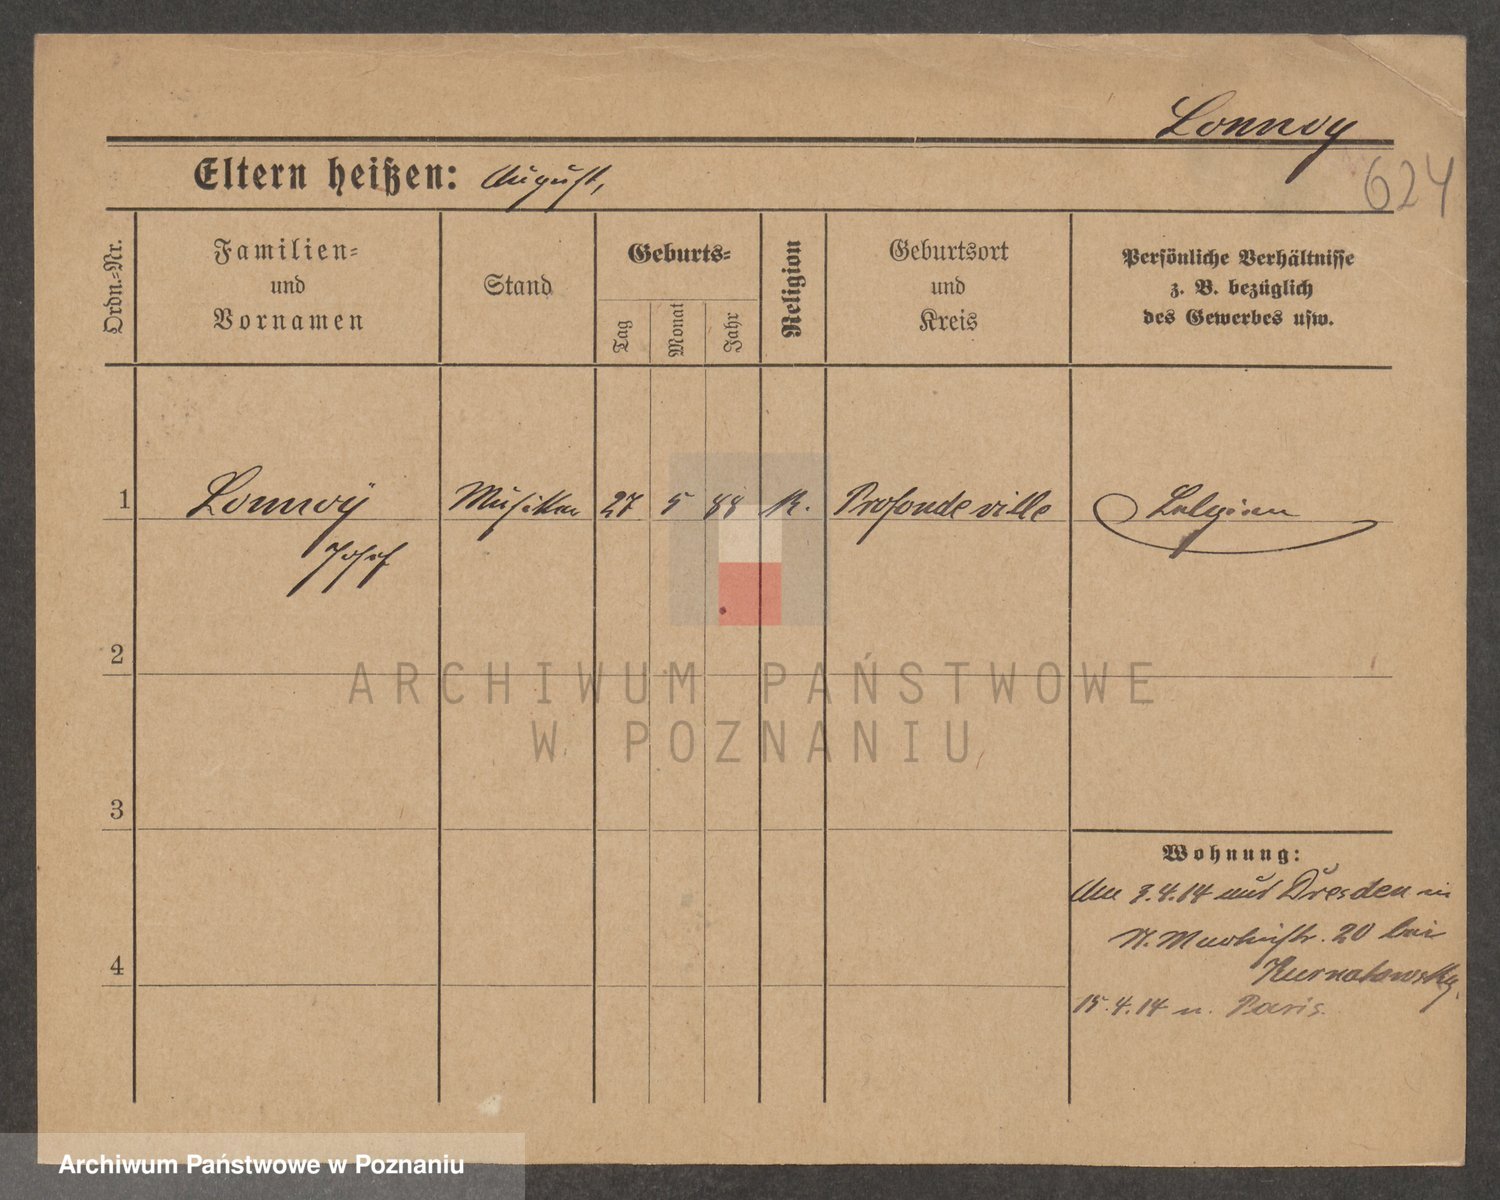 Lonnoy
624
Eltern heißen: August,
Ordn.-Nr.
Familien-
und
Vornamen
Stand
Geburts-
Tag
Monat
Jahr
Religion
Geburtsort
und
Kreis
Persönliche Verhältnisse
z. B. bezüglich
des Gewerbes usw.
1 Lonnoÿ Musiker 27 5 88 K. Profondeville Belgien
Josef
2
ARCHIWUM PAŃSTWOWE
W POZNANIU
3
Wohnung:
Am 9.4.14 aus Dresden in
20 bei
4
Kurnatowsky.
15.4.14 n. Paris.
Archiwum Państwowe w Poznaniu